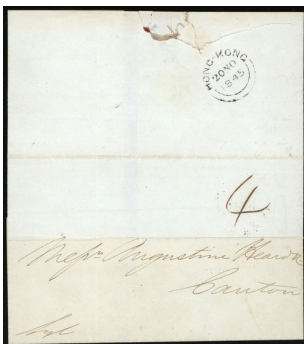 HONG-KONG
20 NO
1845
4
Messrs Augustine Heard &
Canton